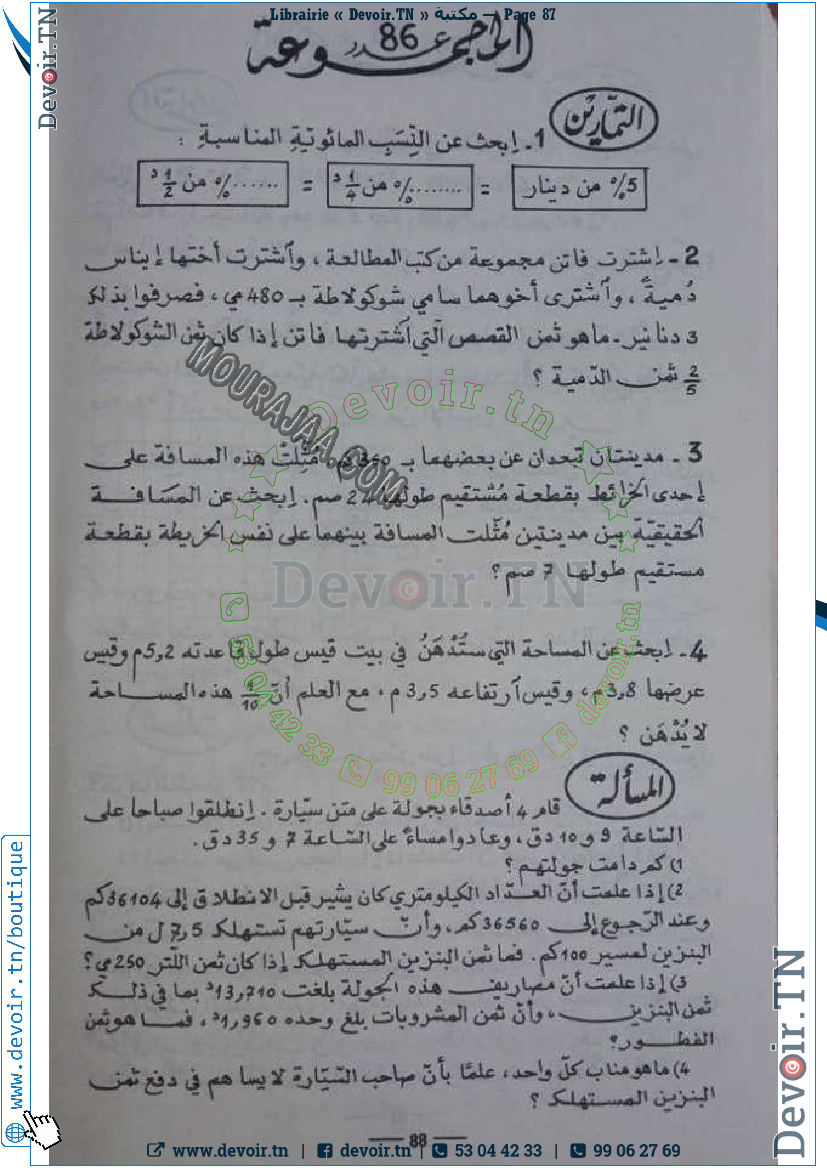 Librairie « Devoir.TN » مكتبة — Page 87
المجموعة عدد 86
التمارين
1 ـ إبحث عن النِّسَبِ المائويّةِ المناسبةِ :
5% من دينار = ........% من 1/4 د = ......% من 1/2 د
2 ـ إشترت فاتن مجموعة من كتب المطالعة ، وٱشترت أختها إيناس
دُميةً ، وٱشترى أخوهما سامي شوكولاطة بـ 480 مي ، فصرفوا بذلك
3 دنانير ـ ماهو ثمن القصص الّتي ٱشترتها فاتن إذا كان ثمن الشوكولاطة
2/5 ثمن الدّمية ؟
3 ـ مدينتان تبعدان عن بعضهما بـ مُثِّلتْ هذه المسافة على
إحدى الخرائط بقطعة مُسْتقيم طولها 24 صم . إبحث عن المسَافـة
الحقيقيّة بين مدينتين مُثّلت المسافة بينهما على نفس الخريطة بقطعة
مستقيم طولها 7 صم ؟
4 ـ إبحث عن المساحة التي ستُدْهَنُ في بيت قيس طول قاعدته 5,2 م وقيس
عرضها 3,8 م ، وقيس ٱرتفاعه 3,5 م ، مع العلم أنّ 1/10 هذه المسـاحة
لا يُدْهَن ؟
المسألة
قام 4 أصدقاء بجولة على متن سيّارة . إنطلقوا صباحا على
السّاعة 9 و 10 دق ، وعادوا مساءً على السّاعة 7 و 35 دق .
1) كم دامت جولتهم ؟
2) إذا علمت أنّ العدّاد الكيلومتري كان يشير قبل الانطلاق إلى 36104 كم
وعند الرّجوع إلى 36560 كم ، وأنّ سيّارتهم تستهلك 7,5 ل من
البنزين لمسير 100 كم . فما ثمن البنزين المستهلك إذا كان ثمن اللّتر 250 مي ؟
3) إذا علمت أنّ مصاريف هذه الجولة بلغت 13,710 د بما في ذلك
ثمن البنزين ، وأنّ ثمن المشروبات بلغ وحده 1,960 د ، فما هو ثمن
الفطور ؟
4) ماهو مناب كلّ واحد ، علمًا بأنّ صاحب السّيّارة لا يساهم في دفع ثمن
البنزين المستهلك ؟
88
MOURAJAA.COM
@evoir.tn
Devoir.TN
53 04 42 33
99 06 27 69
devoir.tn
Devoir.TN
www.devoir.tn/boutique
Devoir.TN
www.devoir.tn | devoir.tn | 53 04 42 33 | 99 06 27 69